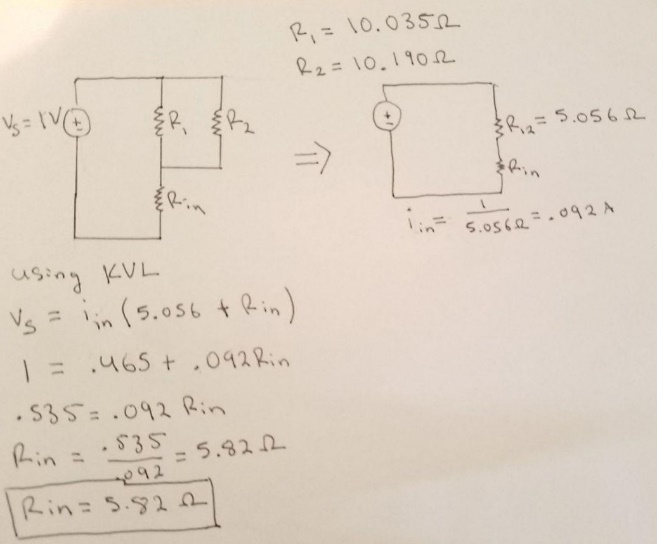 R₁ = 10.035Ω
R₂ = 10.190Ω
Vs = 1V
R₁
R₂
⇒
R₁₂ = 5.056 Ω
Rin
Rin
i in = 1 / 5.056Ω = .092 A
using KVL
Vs = i in (5.056 + Rin)
1 = .465 + .092Rin
.535 = .092 Rin
Rin = .535 / .092 = 5.82 Ω
Rin = 5.82 Ω